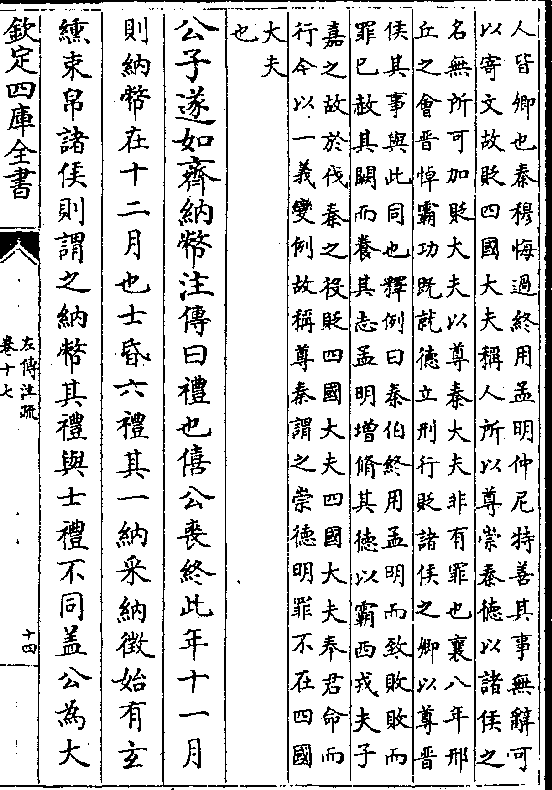 人皆卿也秦穆悔過終用孟明仲尼特善其事無辭可
以寄文故貶四國大夫稱人所以尊崇秦德以諸侯之
名無所可加貶大夫以尊秦大夫非有罪也襄八年邢
丘之會晉悼霸功既就德立刑行貶諸侯之卿以尊晉
侯其事與此同也釋例曰秦伯終用孟明而致敗敗而
罪已赦其闕而養其志孟明增脩其德以霸西戎夫子
嘉之故於伐秦之役貶四國大夫四國大夫奉君命而
行今以一義變例故稱尊秦謂之崇德明罪不在四國
大夫
也
公子遂如齊納幣注傳曰禮也僖公喪終此年十一月
則納幣在十二月也士昏六禮其一納采納徵始有玄
纁束帛諸侯則謂之納幣其禮與士禮不同盖公為大
欽定四庫全書
左傳注疏
卷十七
十四